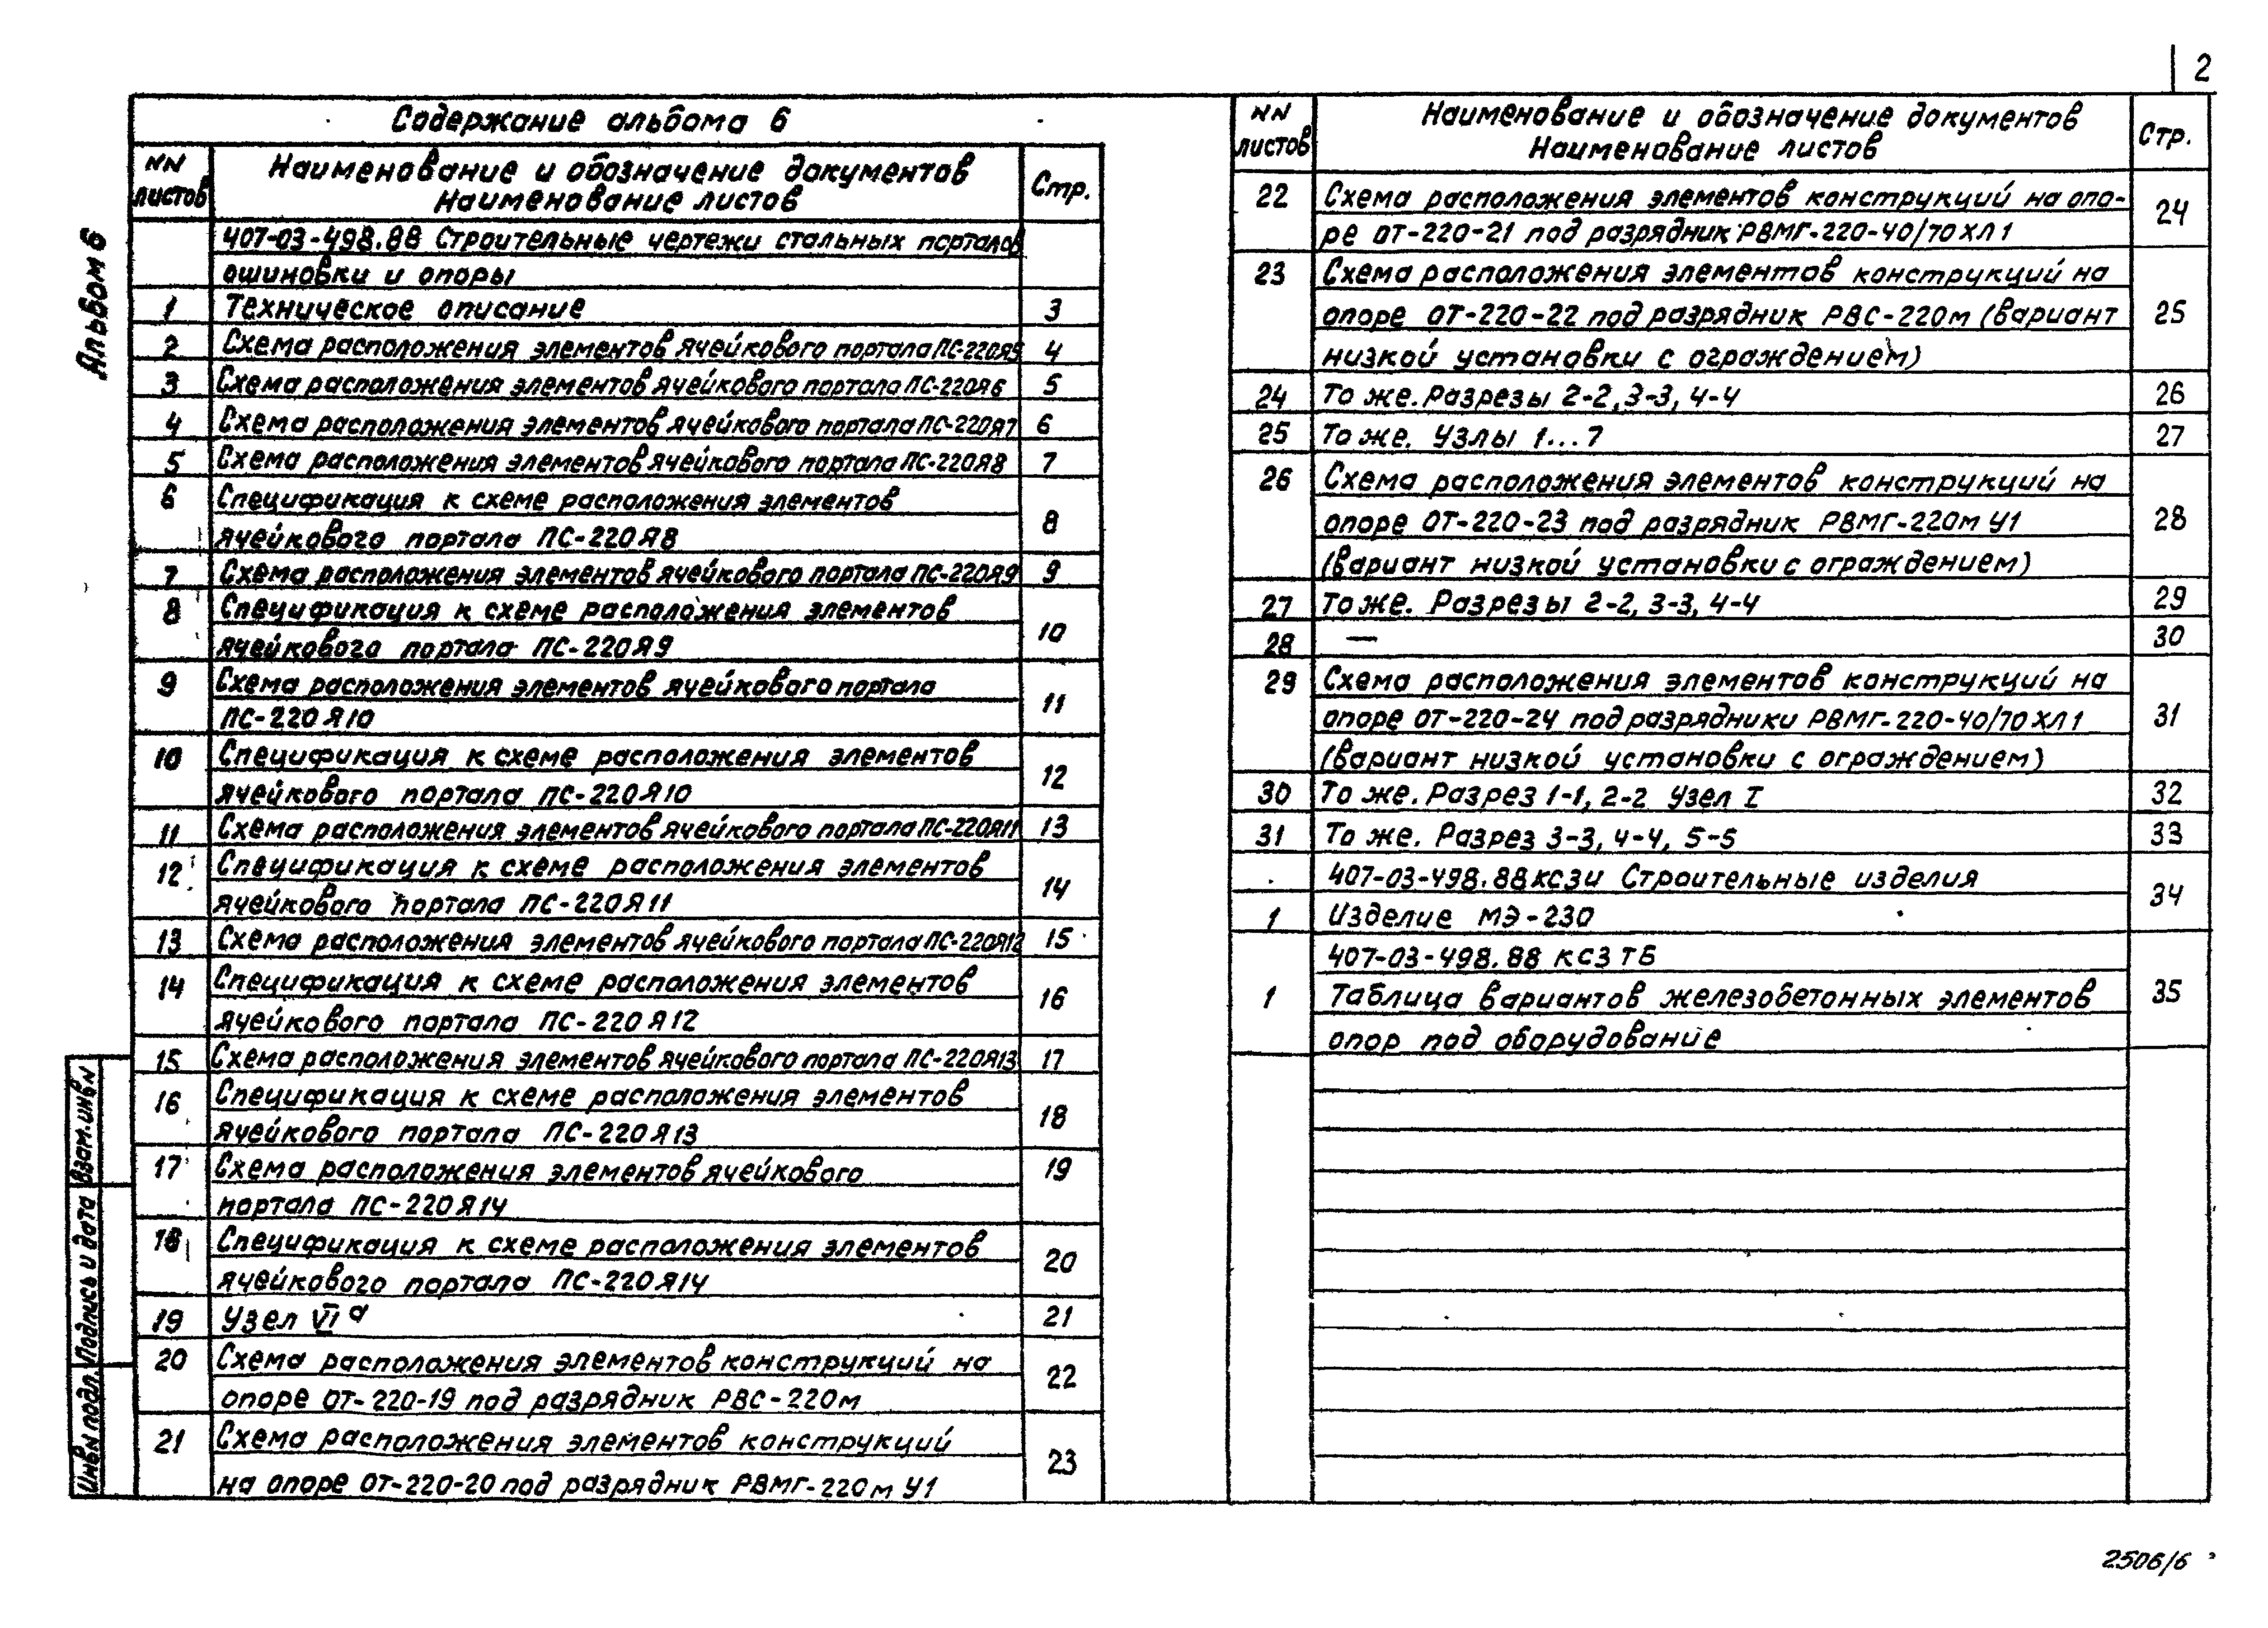 2
Альбом 6
Содержание альбома 6
NN листов
Наименование и обозначение документов
Наименование листов
Стр.
407-03-498.88 Строительные чертежи стальных порталов
ошиновки и опоры
1 Техническое описание 3
2 Схема расположения элементов ячейкового портала ПС-220Я5 4
3 Схема расположения элементов ячейкового портала ПС-220Я6 5
4 Схема расположения элементов ячейкового портала ПС-220Я7 6
5 Схема расположения элементов ячейкового портала ПС-220Я8 7
6 Спецификация к схеме расположения элементов
ячейкового портала ПС-220Я8 8
7 Схема расположения элементов ячейкового портала ПС-220Я9 9
8 Спецификация к схеме расположения элементов
ячейкового портала ПС-220Я9 10
9 Схема расположения элементов ячейкового портала
ПС-220Я10 11
10 Спецификация к схеме расположения элементов
ячейкового портала ПС-220Я10 12
11 Схема расположения элементов ячейкового портала ПС-220Я11 13
12 Спецификация к схеме расположения элементов
ячейкового портала ПС-220Я11 14
13 Схема расположения элементов ячейкового портала ПС-220Я12 15
14 Спецификация к схеме расположения элементов
ячейкового портала ПС-220Я12 16
15 Схема расположения элементов ячейкового портала ПС-220Я13 17
16 Спецификация к схеме расположения элементов
ячейкового портала ПС-220Я13 18
17 Схема расположения элементов ячейкового 19
портала ПС-220Я14
18 Спецификация к схеме расположения элементов
ячейкового портала ПС-220Я14 20
19 Узел VIа 21
20 Схема расположения элементов конструкций на
опоре ОТ-220-19 под разрядник РВС-220м 22
21 Схема расположения элементов конструкций
на опоре ОТ-220-20 под разрядник РВМГ-220м У1 23
NN листов
Наименование и обозначение документов
Наименование листов
Стр.
22 Схема расположения элементов конструкций на опо-
ре ОТ-220-21 под разрядник РВМГ-220-40/70 ХЛ1 24
23 Схема расположения элементов конструкций на
опоре ОТ-220-22 под разрядник РВС-220м (вариант 25
низкой установки с ограждением)
24 То же. Разрезы 2-2, 3-3, 4-4 26
25 То же. Узлы 1...7 27
26 Схема расположения элементов конструкций на
опоре ОТ-220-23 под разрядник РВМГ-220м У1 28
(вариант низкой установки с ограждением)
27 То же. Разрезы 2-2, 3-3, 4-4 29
28 — 30
29 Схема расположения элементов конструкций на
опоре ОТ-220-24 под разрядники РВМГ-220-40/70 ХЛ1 31
(вариант низкой установки с ограждением)
30 То же. Разрез 1-1, 2-2 Узел I 32
31 То же. Разрез 3-3, 4-4, 5-5 33
407-03-498.88 КСЗИ Строительные изделия 34
1 Изделие МЭ-230
407-03-498.88 КСЗ ТБ
1 Таблица вариантов железобетонных элементов 35
опор под оборудование
Взам.инвN
Подпись и дата
ИнвN подл.
2506/6